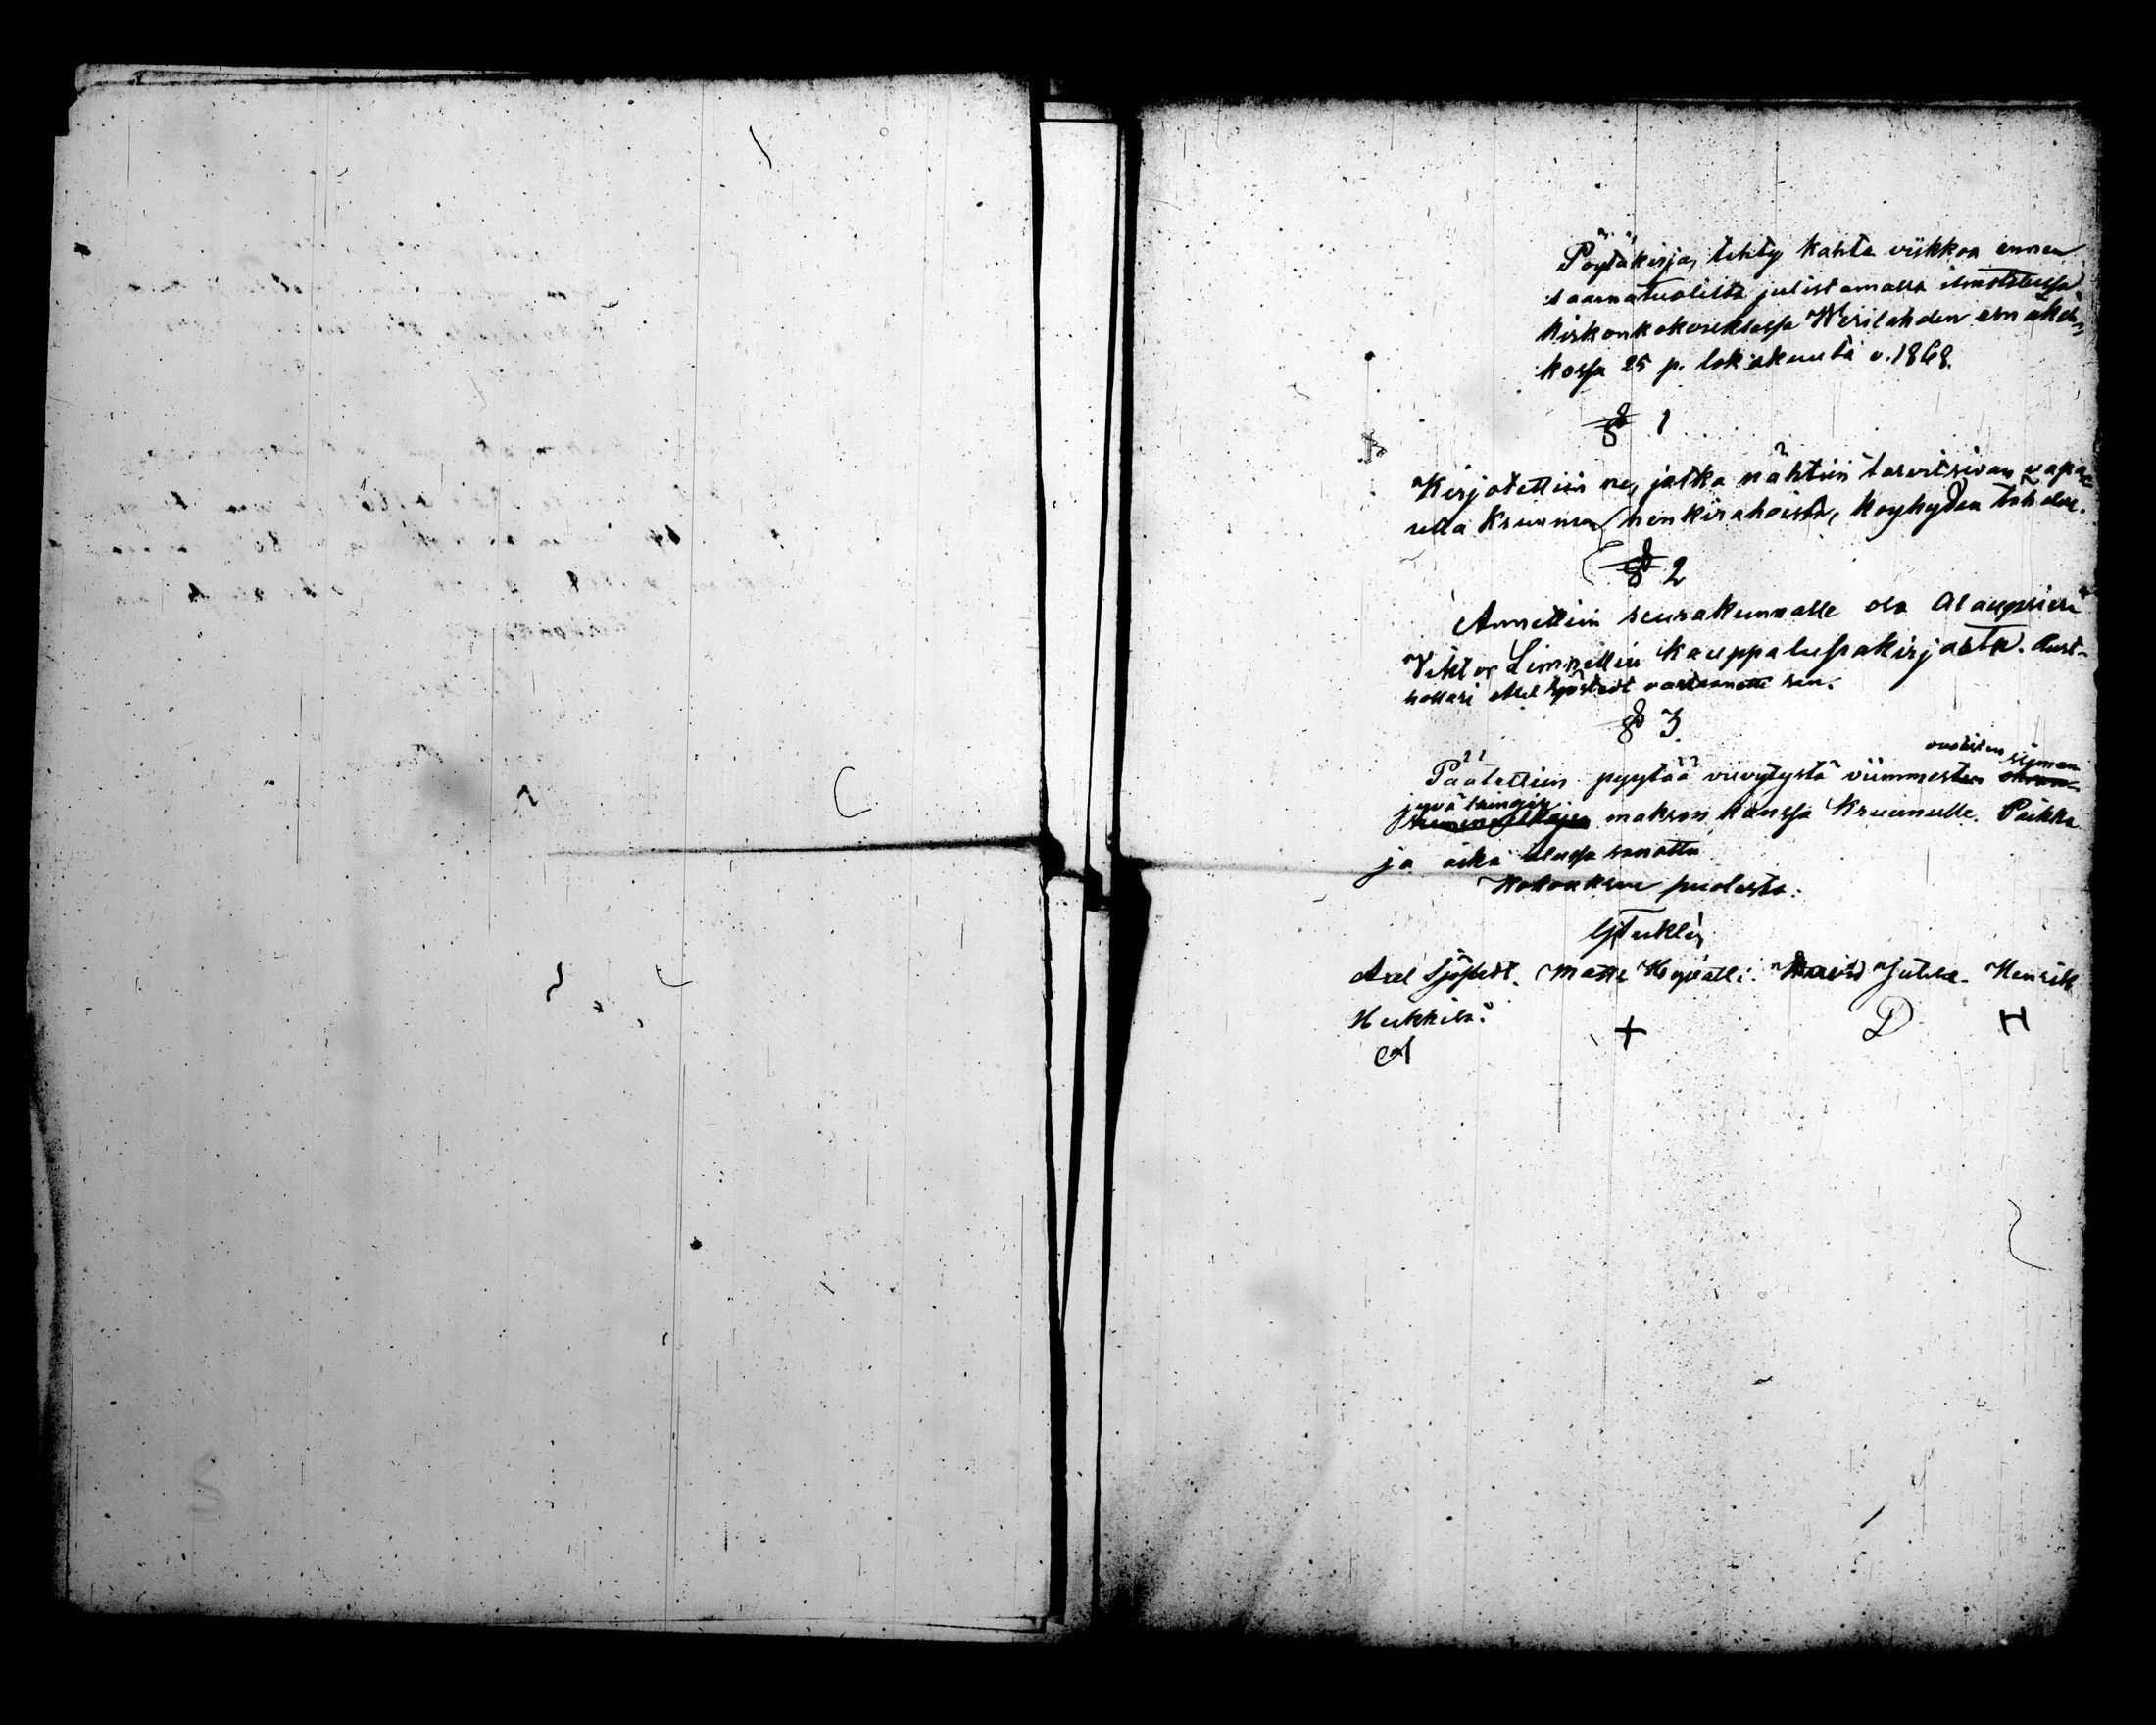 Pöytäkirja, tehty kahta viikkoa ennen
saarnatuolista julistamalla ilmotetussa
kirkonkokouksessa Wesilahden emäkir-
kossa 25 p. lokakuuta v. 1868.
§ 1
Kirjotettiin ne, jotka nähtiin tarvitsivan vapa-
utta kruunun henkirahoista, köyhyden tähden.
§ 2
Annettiin seurakunnalle osa Alaupseri
Viktor Limnellin kauppalupakirjasta. Rust-
hollari Axel Sjöstedt vastaanotti sen.
§ 3.
Päätettiin pyytää viivytystä viimmesten
vuotisten siemen
jyvä lainojen makson kanssa Kruunulle. Paikka
ja aika alussa sanottu
Kokouksen puolesta:
Axel Sjöstedt. Matti Hyvälli. David Jutila. Henrik
Heikkilä.
+ D H
A